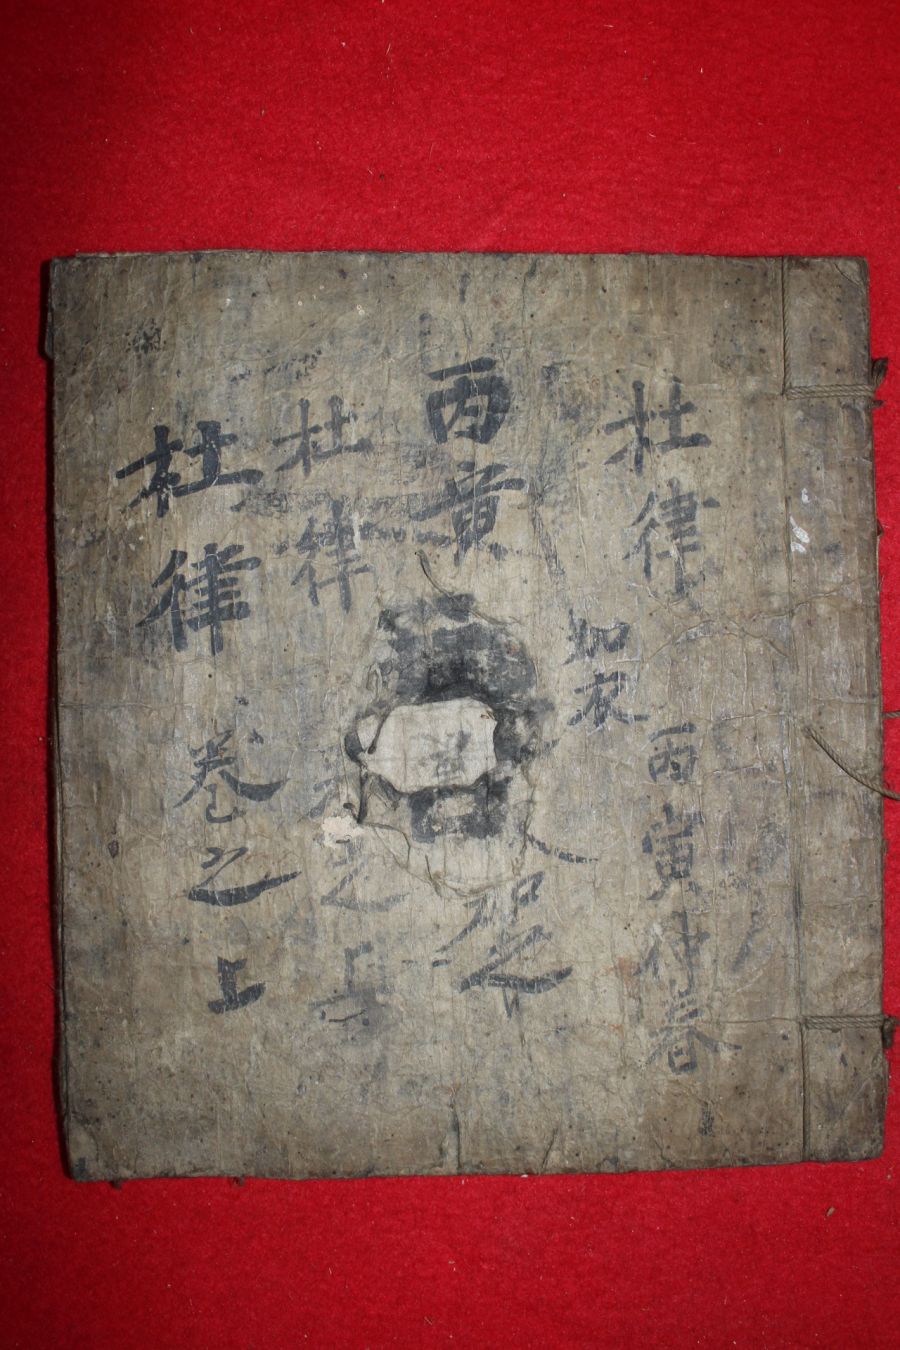 杜律
丙寅仲春
如衣
丙寅
杜律
之上
杜律
卷之上